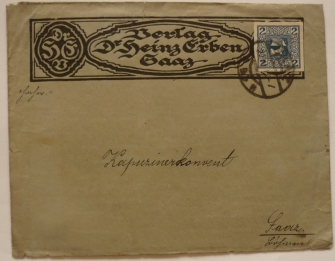 Verlag
Dr Heinz Erben
Saaz
2 2
Kapuzinerkonvent
Saaz
Böhmen